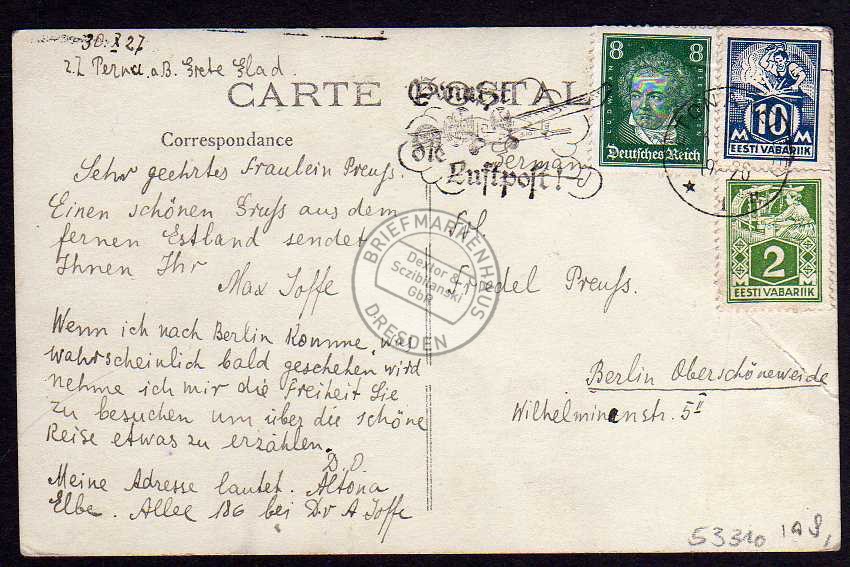 30. X 27
z.Z Pernu a.B. Grete
CARTE POSTAL
Correspondance
Sehr geehrtes Fräulein Preuß.
Einen schönen Gruss aus dem
fernen Estland sendet
Ihnen Ihr
Max Joffe
Wenn ich nach Berlin komme, was
wahrscheinlich bald geschehen wird
nehme ich mir die Freiheit Sie
zu besuchen um über die schöne
Reise etwas zu erzählen.
D. O.
Meine Adresse lautet. Altona
Elbe. Allee 186 bei Dr A Joffe
Benutzt
die
Luftpost!
German
Frl
Friedel Preuß.
Berlin Oberschöneweide
Wilhelminenstr. 5 II
8 8
LUDWIG VAN
Deutsches Reich
10
M M
EESTI VABARIIK
2
M M
EESTI VABARIIK
BRIEFMARKENHAUS
Dextor &
Sczibilanski
GbR
DRESDEN
53310